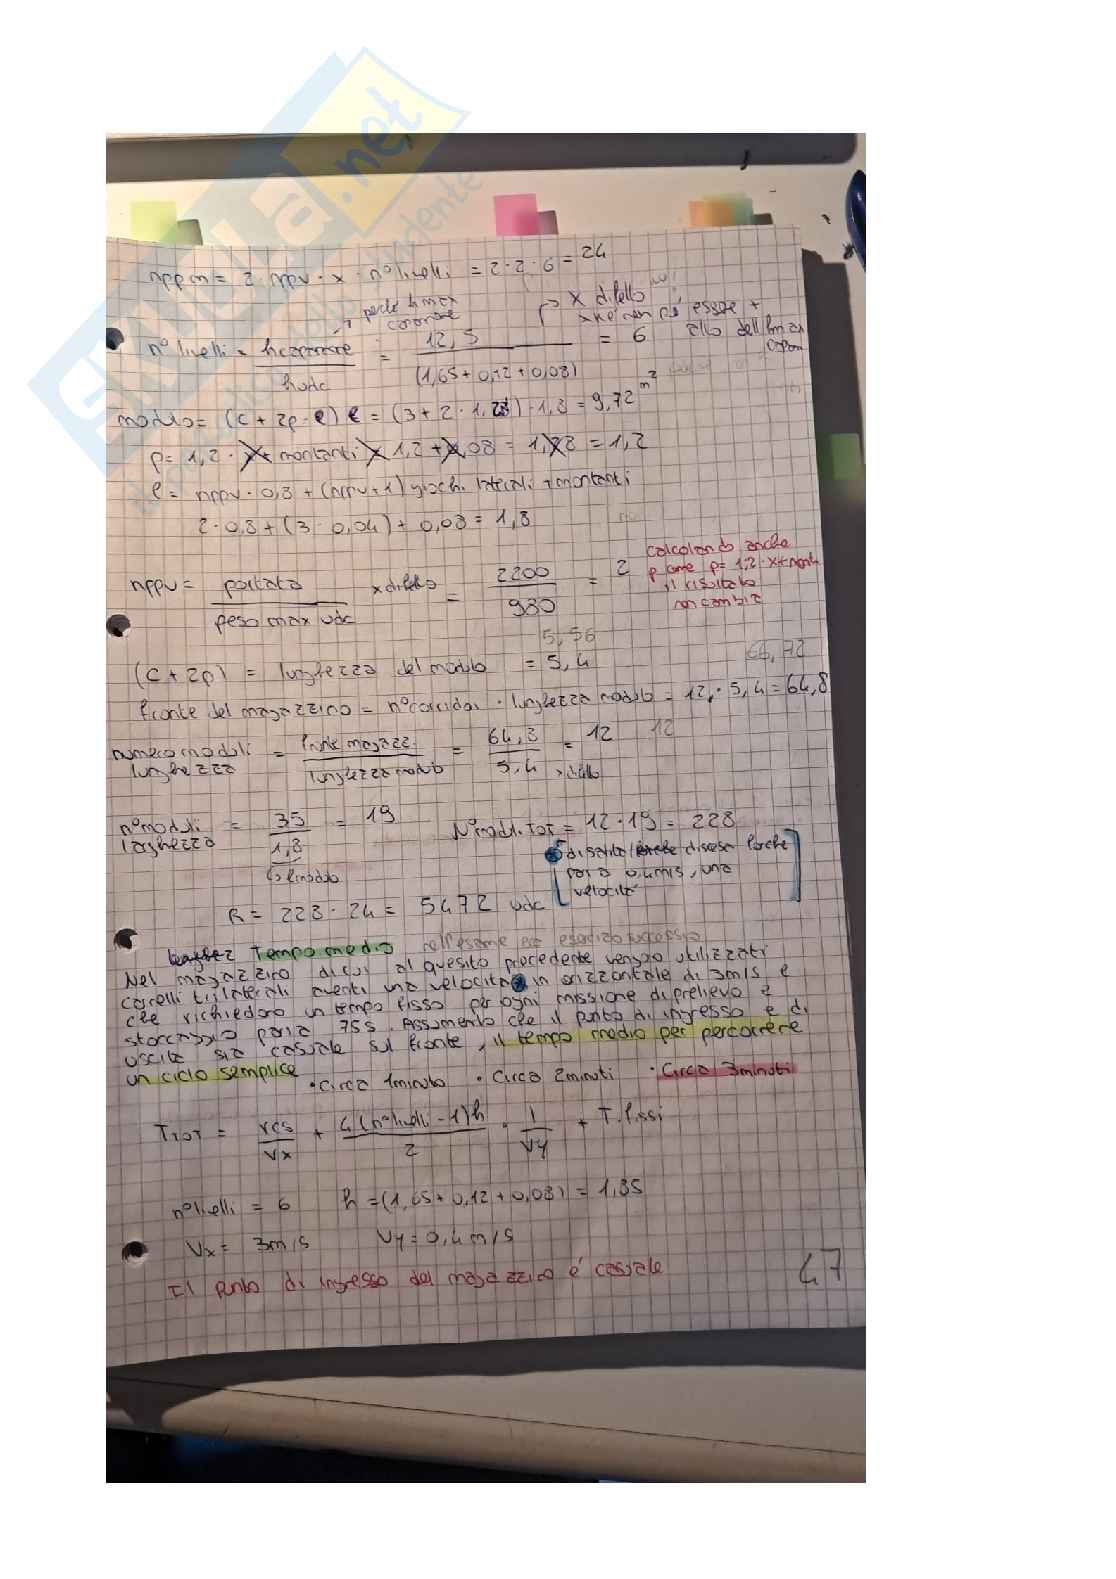 nppm = 2 · npv · x · n° livelli = 2 · 2 · 6 = 24
perché h max
corsia
x difetto
xké non può essere +
alto dell'hmax
n° livelli = = 12,5 / (1,65 + 0,12 + 0,08) = 6
hudc
modulo = (c + 2p · l) l = (3 + 2 · 1,2) · 1,8 = 9,72 m²
p = 1,2 · x + montanti x 1,2 + 0,08 = 1,28 = 1,2
l = nppv · 0,8 + (nppv + 1) giochi laterali + montanti
2 · 0,8 + (3 · 0,04) + 0,08 = 1,8
calcolando anche
p come p = 1,2 · x + mont
il risultato
non cambia
nppv = portata / peso max udc x difetto = 2200 / 980 = 2
5,56
(c + 2p) = lunghezza del modulo = 5,4
66,72
fronte del magazzino = n° corridoi · lunghezza modulo = 12 · 5,4 = 64,8
numero moduli lunghezza = fronte magazz. / lunghezza modulo = 64,8 / 5,4 = 12 12
x difetto
n° moduli larghezza = 35 / 1,8 = 19 N° moduli TOT = 12 · 19 = 228
l modulo
di salita discesa forche
pari a 0,4m/s, una
velocità
R = 228 · 24 = 5472 udc
Tempo medio nell'esame era esercizio successivo
Nel magazzino di cui al quesito precedente vengono utilizzati
carrelli trilaterali aventi una velocità in orizzontale di 3m/s e
che richiedono un tempo fisso per ogni missione di prelievo e
stoccaggio pari a 75s. Assumento che il punto di ingresso e di
uscita sia casuale sul fronte, il tempo medio per percorrere
un ciclo semplice
• Circa 1minuto • Circa 2minuti • Circa 3minuti
TTOT = / Vx + 4 (n°livelli - 1) h / 2 · 1 / Vy + T. fissi
n°livelli = 6 h = (1,65 + 0,12 + 0,08) = 1,85
Vx = 3m/s Vy = 0,4m/s
Il punto di ingresso del magazzino é casuale
47
SKUOLA.net